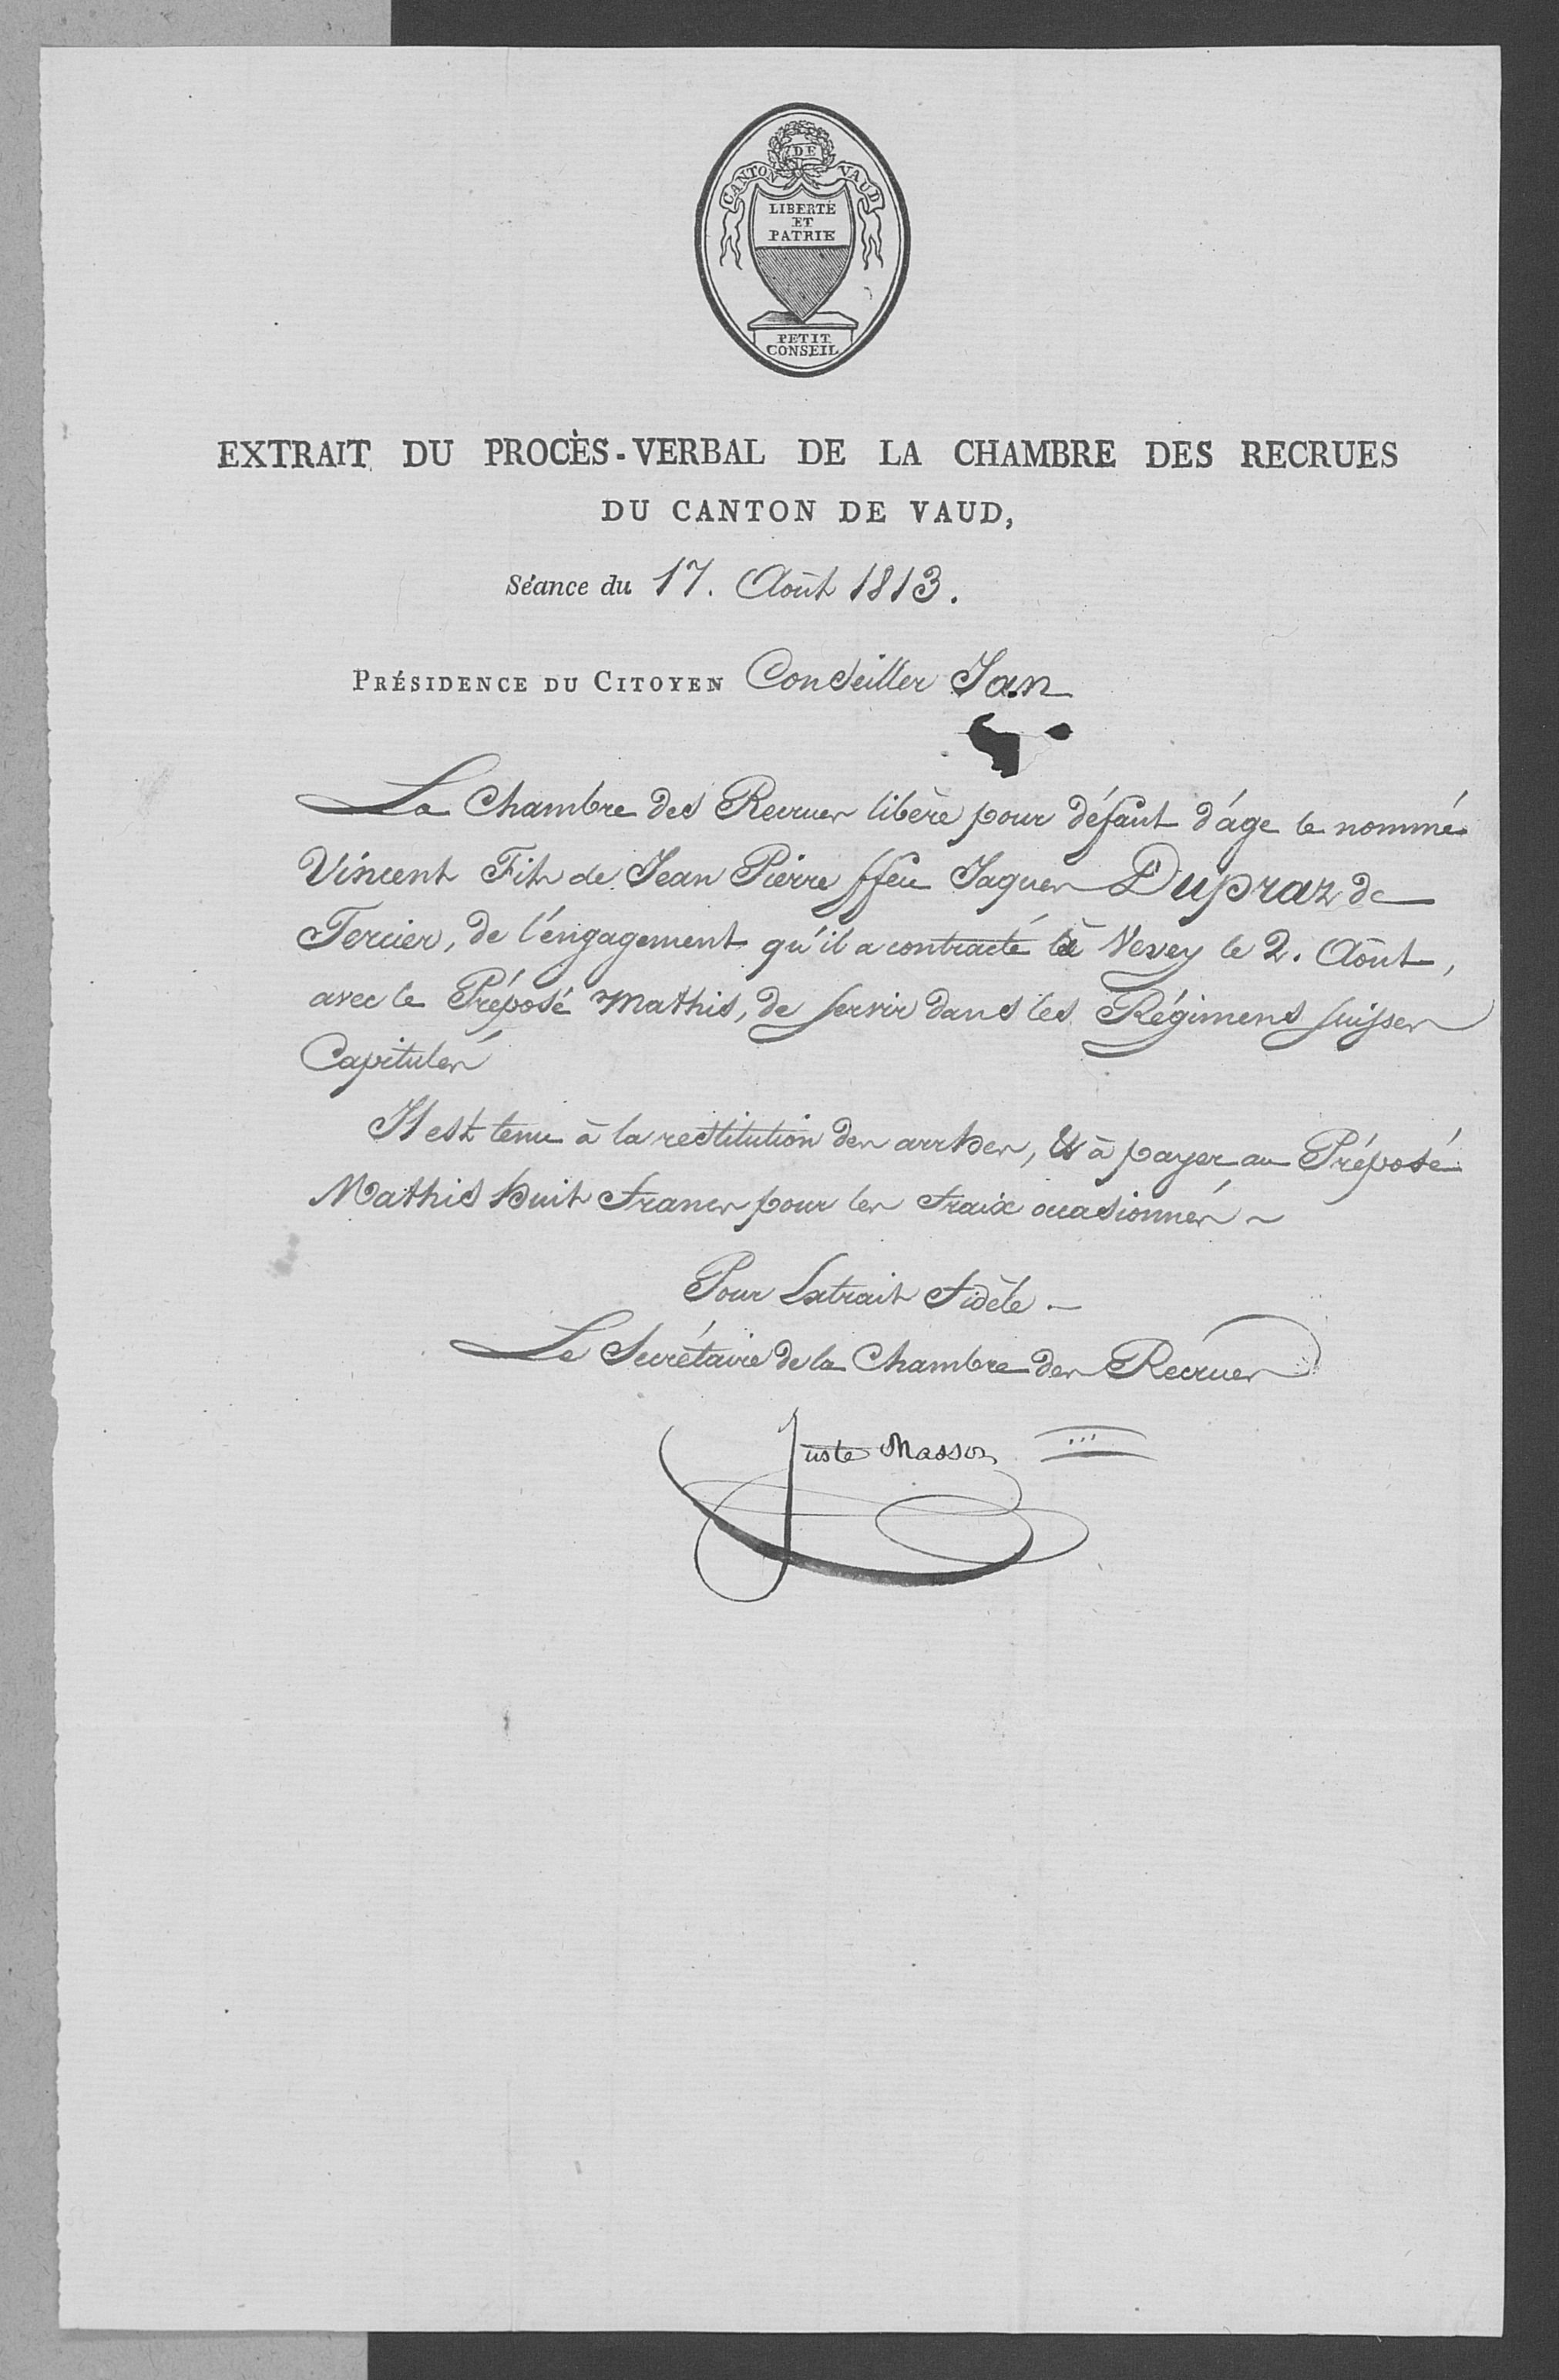 CANTON DE VAUD
LIBERTÉ
ET
PATRIE
PETIT
CONSEIL
EXTRAIT DU PROCÈS-VERBAL DE LA CHAMBRE DES RECRUES
DU CANTON DE VAUD,
Séance du 17. Août 1813.
PRÉSIDENCE DU CITOYEN Conseiller Jan
La Chambre des Recrues libère pour défaut d'âge le nommé
Vincent Fils de Jean Pierre ffeu Jaques Dupraz de
Tercier, de l'éngagement qu'il a contracté à Vevey le 2. Août,
avec le Préposé Mathis, de servir dans les Régimens suisses
Capitulés
Il est tenu à la restitution des arrhes, & à payer au Préposé
Mathis huit francs pour les fraix occasionnés
Pour Extrait fidèle
Le Secrétaire de la Chambre des Recrues
Juste Masson